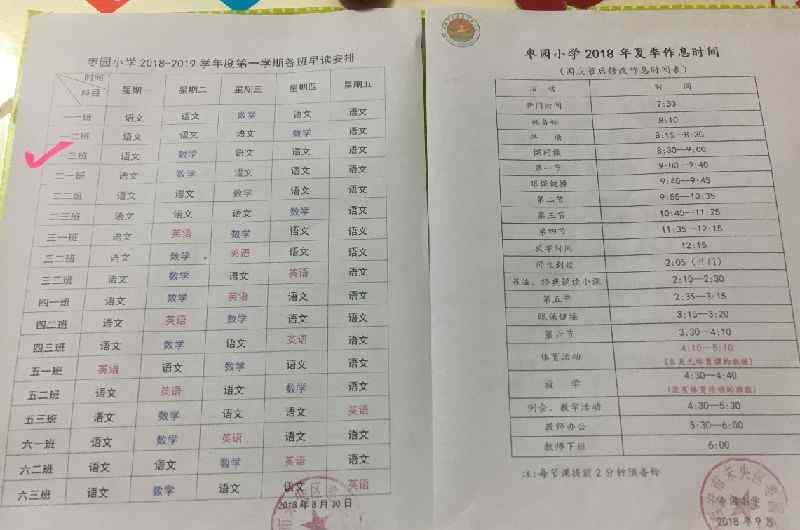 枣园小学 2018-2019 学年度第一学期各班早读安排
时间 科目 星期一 星期二 星期三 星期四 星期五
一一班 语文 语文 数学 语文 语文
一二班 语文 语文 语文 数学 语文
三班 语文 数学 语文 语文 语文
二一班 语文 数学 语文 语文 语文
二二班 语文 语文 数学 语文 语文
二三班 语文 语文 语文 数学 语文
三一班 语文 英语 数学 语文 语文
三二班 语文 数学 英语 语文 语文
三三班 语文 数学 语文 英语 语文
四一班 语文 数学 英语 语文 语文
四二班 语文 英语 数学 语文 语文
四三班 语文 数学 语文 英语 语文
五一班 英语 语文 数学 语文 语文
五二班 语文 英语 语文 数学 语文
五三班 语文 数学 语文 语文 英语
六一班 语文 数学 英语 语文 语文
六二班 语文 语文 数学 英语 语文
六三班 语文 数学 语文 语文 英语
2018年8月30日
枣园小学 2018 年夏季作息时间
时 间
7:30
8:10
8:15—8:30
8:30—9:00
第一节 9:00—9:40
眼保健操 9:40—9:45
第二节
第三节 10:45—11:25
第四节 11:35—12:15
放学时间 12:15
2:05
2:10—2:30
第五节 2:35—3:15
眼保健操 3:15—3:20
第六节 3:30—4:10
体育活动 4:10—5:10
放 学 4:30—4:40
(没有体育活动的班级)
例会、教学活动 4:30—5:30
教师办公 5:30—6:00
教师下班 6:00
注:每节课提前2分钟预备铃
2018 年 9 月